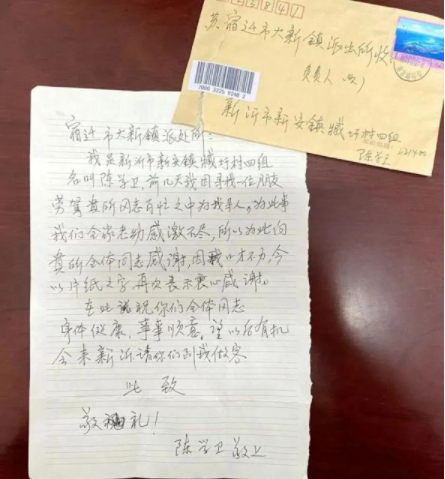 苏宿迁市大新镇派出所收
负责人(收)
新沂市新安镇臧圩村四组
陈学卫
宿迁市大新镇派处所:
我是新沂市新安镇臧圩村四组
名叫陈学卫,前几天我因寻找一位朋友
劳驾贵所同志百忙之中为我寻人。为此事
我们全家老幼感激不尽,所以为此向
贵所全体同志感谢,因我才不力,今
以片纸文字再次表示衷心感谢。
在此祝你们全体同志
身体健康,事事顺意。望以后有机
会来新沂请你们到我做客
此致
敬礼!
陈学卫敬上